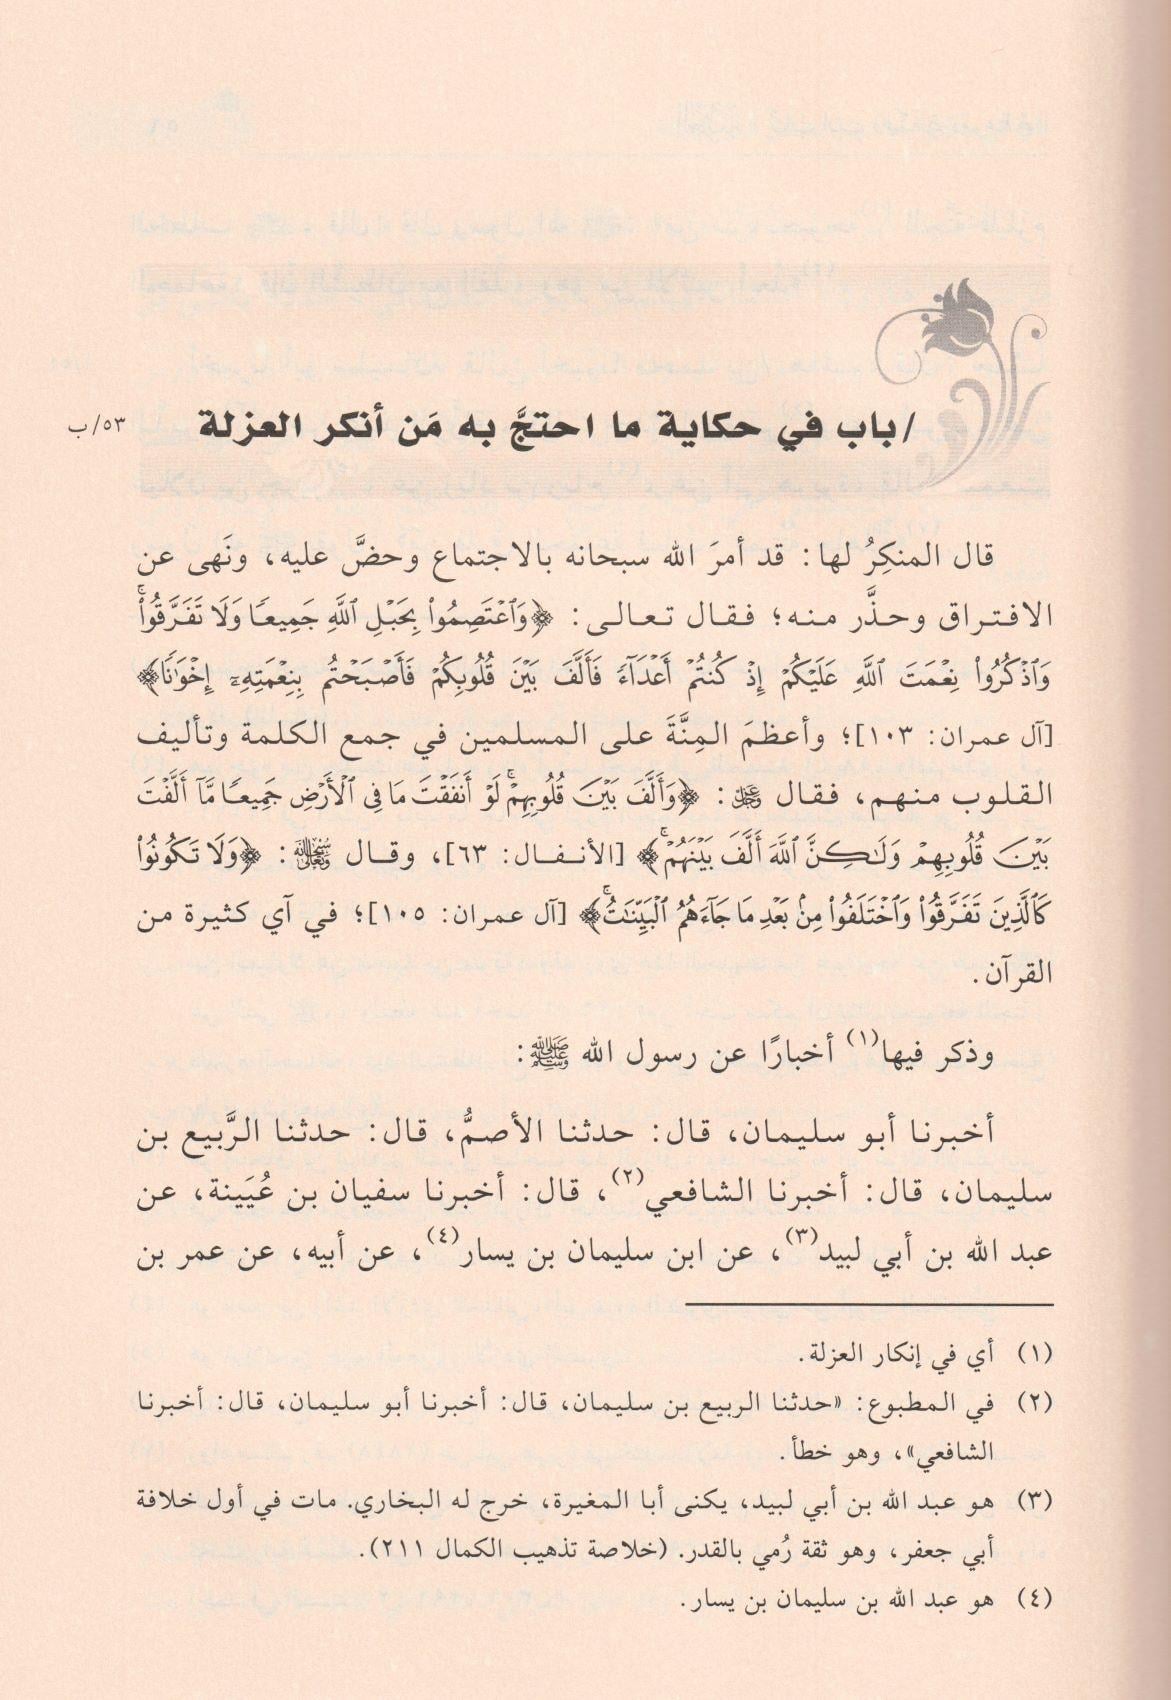 /باب في حكاية ما احتجَّ به مَن أنكر العزلة
٥٣/ب
قال المنكِرُ لها: قد أمرَ الله سبحانه بالاجتماع وحضَّ عليه، ونَهى عن
الافتراق وحذَّر منه؛ فقال تعالى: ﴿وَٱعۡتَصِمُواْ بِحَبۡلِ ٱللَّهِ جَمِيعٗا وَلَا تَفَرَّقُواْۚ
وَٱذۡكُرُواْ نِعۡمَتَ ٱللَّهِ عَلَيۡكُمۡ إِذۡ كُنتُمۡ أَعۡدَآءٗ فَأَلَّفَ بَيۡنَ قُلُوبِكُمۡ فَأَصۡبَحۡتُم بِنِعۡمَتِهِۦٓ إِخۡوَٰنٗا﴾
[آل عمران: ١٠٣]؛ وأعظمَ المِنَّةَ على المسلمين في جمع الكلمة وتأليف
القلوب منهم، فقال عَزَّوَجَلَّ: ﴿وَأَلَّفَ بَيۡنَ قُلُوبِهِمۡۚ لَوۡ أَنفَقۡتَ مَا فِي ٱلۡأَرۡضِ جَمِيعٗا مَّآ أَلَّفۡتَ
بَيۡنَ قُلُوبِهِمۡ وَلَٰكِنَّ ٱللَّهَ أَلَّفَ بَيۡنَهُمۡۚ﴾ [الأنفال: ٦٣]، وقال سُبْحَانَهُ وَتَعَالَى: ﴿وَلَا تَكُونُواْ
كَٱلَّذِينَ تَفَرَّقُواْ وَٱخۡتَلَفُواْ مِنۢ بَعۡدِ مَا جَآءَهُمُ ٱلۡبَيِّنَٰتُۚ﴾ [آل عمران: ١٠٥]؛ في آي كثيرة من
القرآن.
وذكر فيها(١) أخبارًا عن رسول الله ﷺ:
أخبرنا أبو سليمان، قال: حدثنا الأصمُّ، قال: حدثنا الرَّبيع بن
سليمان، قال: أخبرنا الشافعي(٢)، قال: أخبرنا سفيان بن عُيَينة، عن
عبد الله بن أبي لبيد(٣)، عن ابن سليمان بن يسار(٤)، عن أبيه، عن عمر بن
(١) أي في إنكار العزلة.
(٢) في المطبوع: «حدثنا الربيع بن سليمان، قال: أخبرنا أبو سليمان، قال: أخبرنا
الشافعي»، وهو خطأ.
(٣) هو عبد الله بن أبي لبيد، يكنى أبا المغيرة، خرج له البخاري. مات في أول خلافة
أبي جعفر، وهو ثقة رُمي بالقدر. (خلاصة تذهيب الكمال ٢١١).
(٤) هو عبد الله بن سليمان بن يسار.